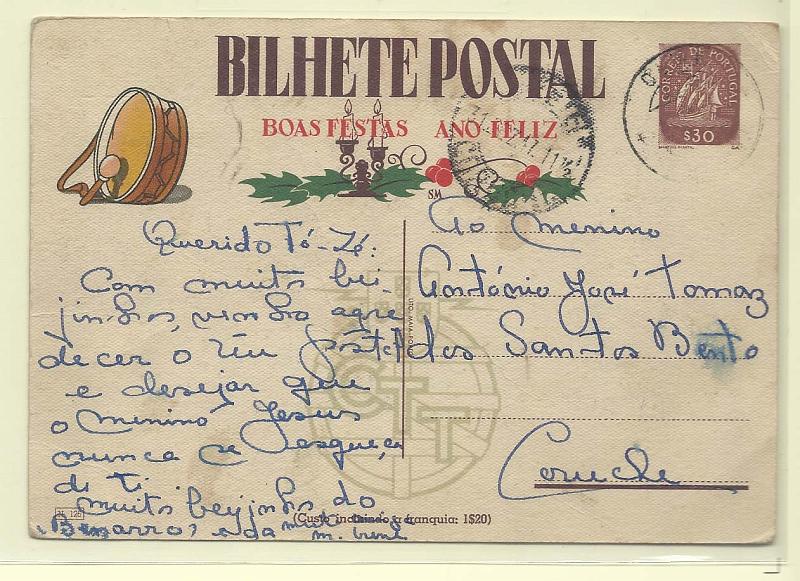 BILHETE POSTAL
BOAS FESTAS ANO FELIZ
CORREIO DE PORTUGAL
$30
SM
Querido Tó-Zé:
Com muitos bei-
jinhos, venho agra
decer o teu postal
e desejar que
o menino Jesus
nunca se esqueça
de ti
muitos beijinhos do
e da
Ao menino
António José Tomaz
dos Santos Bento
Coruche
CTT
(Custo incluindo a franquia: 1$20)